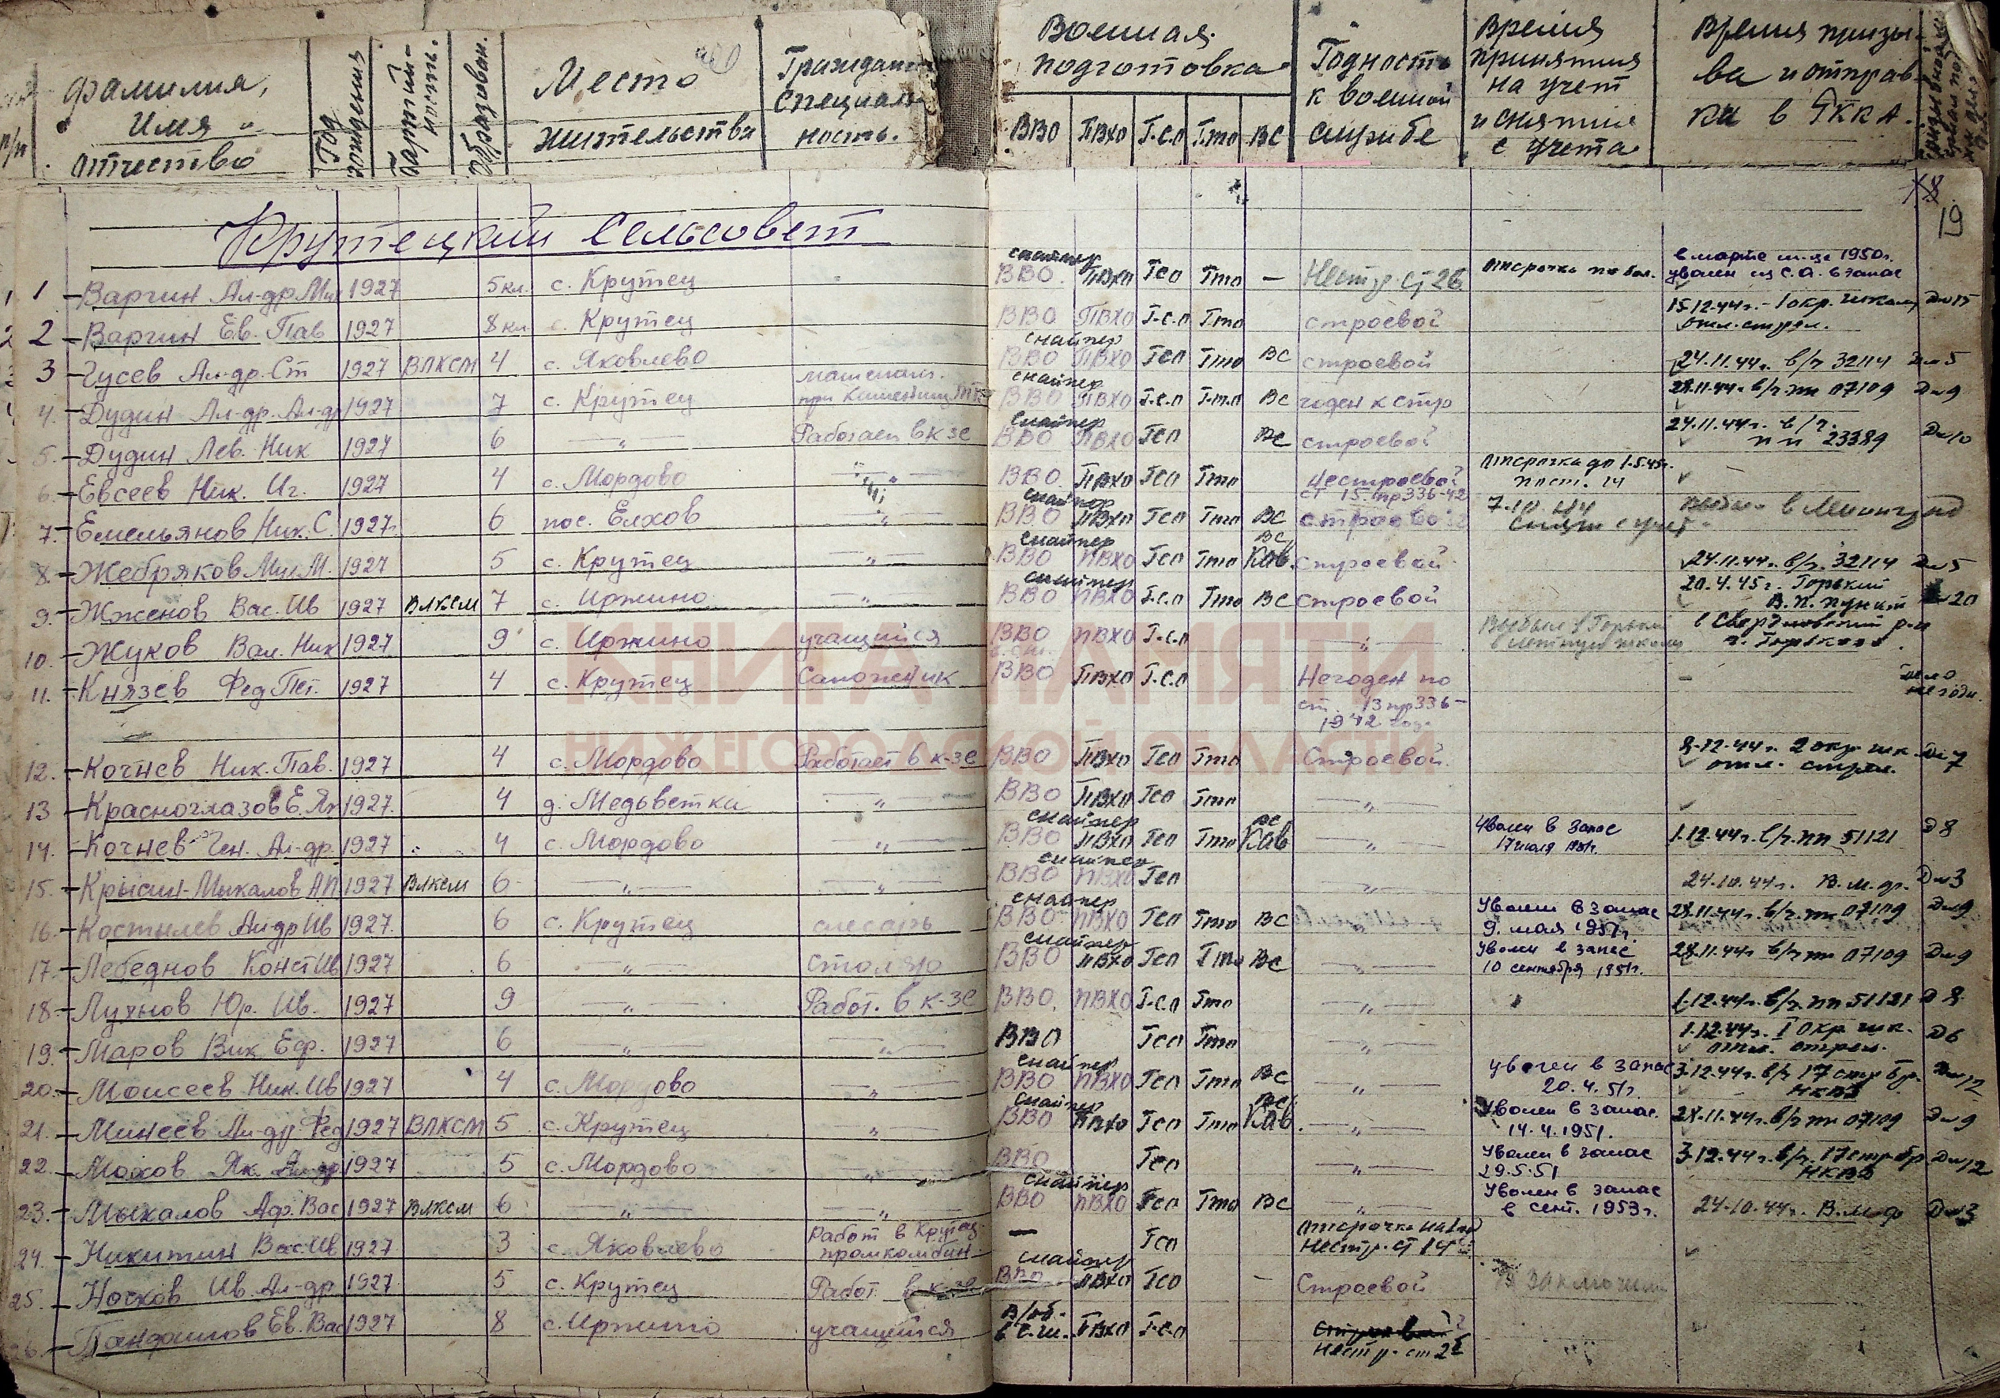 Фамилия, Имя Отчество Год рождения Партийность. Образован. Место жительства Граждан. специальность. Военная подготовка ВВО ПВХО Г.С.О ГТО ВС Годность к военной службе Время принятия на учет и снятия с учета Время призыва и отправки в РККА.
19
Крутецкий Сельсовет
1 Варгин Ал-др. Ми 1927 5кл. с. Крутец снайпер ВВО ПВХО ГСО ГТО — Нестр. ст 26 отсрочка по бол. в марте м-це 1950г. уволен из С.А. в запас
2 Варгин Ев. Пав 1927 8кл с. Крутец ВВО ПВХО Г.С.О ГТО строевой 15.12.44г. - 1 окр. школ отл. стрел. Дм 15
3 Гусев Ал-др. Ст 1927 ВЛКСМ 4 с. Яковлево снайпер ВВО ПВХО ГСО ГТО ВС строевой 24.11.44г. в/ч 32114 Дм 5
4. Дудин Ал-др. Ал-др 1927 7 с. Крутец снайпер ВВО ПВХО Г.С.О Г.Т.О ВС годен к стр 28.11.44г. в/ч. пп 07109 Дм 9
5. Дудин Лев. Ник 1927 6 — " — Работает в к-зе снайпер ВВО ПВХО ГСО ВС строевой 24.11.44г. в/ч. пп 23389 Дм 10
6. Евсеев Ник. Иг. 1927 4 с. Мордово — " — ВВО ПВХО ГСО ГТО Нестроевой ст 15. пр 336-42 отсрочка до 1.5.45г. пост. 14
7. Емельянов Ник. С. 1927г 6 пос. Елхов — " — снайпер ВВО ПВХО ГСО ГТО ВС строевой 7.10.44 снят с учет
8. Жебряков Мих. М. 1927 5 с. Крутец — " — снайпер ВВО ПВХО ГСО ГТО ВС Кав. строевой 24.11.44г. в/ч. 32114 Дм 5
9. Жженов Вас. Ив 1927 ВЛКСМ 7 с. Иржино снайпер ВВО ПВХО Г.С.О ГТО ВС строевой 20.4.45г. Горький В.П. пункт 20
10. Жуков Вал. Ник 1927 9 с. Иржино учащийся ВВО ПВХО Г.С.О — " — в Свердловский р-н г. Горького.
11. Князев Фед. Пет. 1927 4 с. Крутец Сапожник ВВО ПВХО Г.С.О Негоден по ст. 13 пр 336-1942 года —
12. Кочнев Ник. Пав. 1927 4 с. Мордово Работает в к-зе ВВО ПВХО ГСО ГТО Строевой. 8.12.44г. 2 окр. шк. отл. стрел. Дм 7
13 Красноглазов Е. Як 1927. 4 д. Медьветка — " — ВВО ПВХО ГСО ГТО — " —
14. Кочнев Ген. Ал-др. 1927 4 с. Мордово — " — снайпер ВВО ПВХО ГСО ГТО ВС Кав — " — Уволен в запас 17 июля 1951г. 1.12.44г. в/ч. пп 51121 Д 8
15. Крысин-Михалов А.П. 1927 ВЛКСМ 6 — " — — " — снайпер ВВО ПВХО ГСО — " — 24.10.44г. В.м.ф. Дм 3
16. Костылев Ал-др Ив 1927. 6 с. Крутец слесарь снайпер ВВО ПВХО ГСО ГТО ВС Уволен в запас 9. мая 1951г. 28.11.44г. в/ч. пп 07109 Дм 9
17. Лебеднов Конст Ив 1927 6 — " — столяр снайпер ВВО ПВХО ГСО ГТО ВС — " — Уволен в запас 10 сентября 1951г. 28.11.44г в/ч пп 07109 Дм 9
18. Лухнов Юр. Ив. 1927 9 — " — Работ. в к-зе ВВО. ПВХО Г.С.О ГТО — " — 1.12.44г. в/ч. пп 51121 Д 8.
19. Маров Вик. Еф. 1927 6 — " — — " — ВВО ГСО ГТО — " — 1.12.44г. I окр. шк. отл. стрел. Д 6
20. Моисеев Ник. Ив 1927 4 с. Мордово — " — снайпер ВВО ПВХО ГСО ГТО ВС — " — уволен в запас 20.4.51г. 3.12.44г. в/ч 17 стр бр. НКВД Дм 12
21. Минеев Ал-др. Фед 1927 ВЛКСМ 5 с. Крутец — " — снайпер ВВО ПВХО ГСО ГТО ВС Кав. — " — Уволен в запас. 14.4.1951. 28.11.44г. в/ч пп 07109 Дм 9
22. Мохов Як. Ал-др 1927 5 с. Мордово — " — ВВО ГСО — " — Уволен в запас 29.5.51 3.12.44г. в/ч. 17 стр бр. НКВД Дм 12
23. Михалов Аф. Вас 1927 ВЛКСМ 6 — " — — " — снайпер ВВО ПВХО ГСО ГТО ВС — " — Уволен в запас в сент. 1953г. 24.10.44г. В.м.ф Дм 3
24. Никитин Вас. Ив 1927 3 с. Яковлево Работ в Крутец. промкомбин — ГСО Нестр. ст 14
25. Ночков Ив. Ал-др 1927 5 с. Крутец Работ. в к-зе снайпер ВВО ПВХО ГСО — Строевой
26. Пандашов Ев. Вас 1927 8 с. Иржино учащийся В/об. в С.Ш. ПВХО Г.С.О Нестр. ст 26
КНИГА ПАМЯТИ
НИЖЕГОРОДСКОЙ ОБЛАСТИ